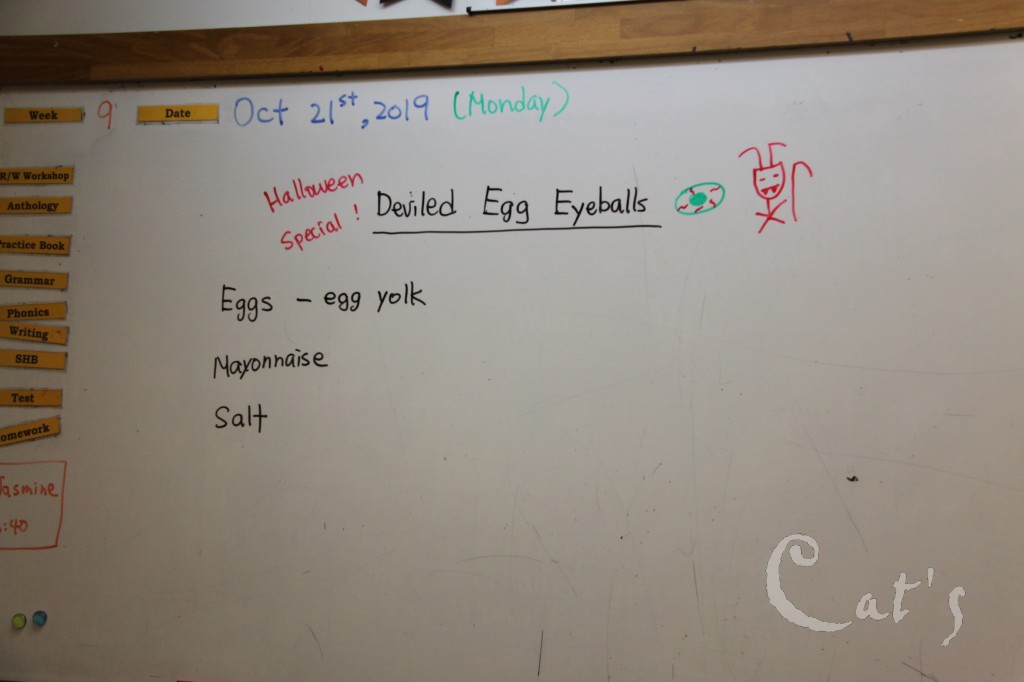 Week 9 Date Oct 21st, 2019 (Monday)
Halloween
Special!
Deviled Egg Eyeballs
Eggs - egg yolk
Mayonnaise
Salt
R/W Workshop
Anthology
Practice Book
Grammar
Phonics
Writing
SHB
Test
omework
Jasmine
:40
Cat's